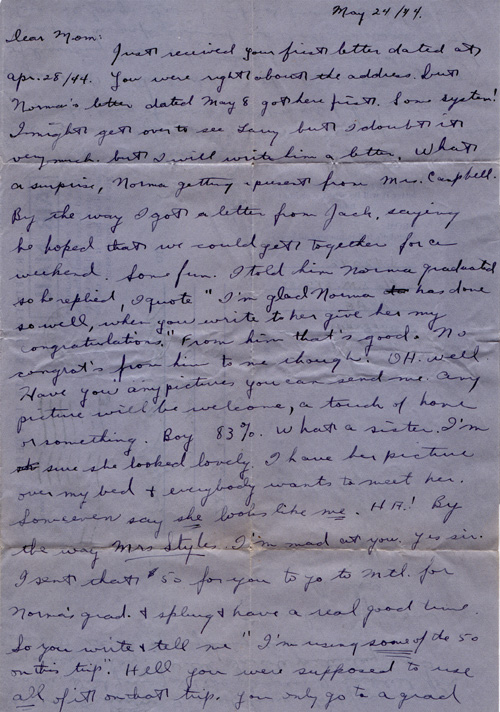 May 24/44.
Dear Mom:
Just received your first letter dated at
Apr. 28/44. You were right about the address. but
Norma's letter dated May 8 got here first. Some system!
I might get over to see Lary but I doubt it
very much. but I will write him a letter. What
a surprise, Norma getting a present from Mrs. Campbell.
By the way I got a letter from Jack, saying
he hoped that we could get together for a
weekend. Some fun. I told him Norma graduated
so he replied, I quote "I'm glad Norma has done
so well, when you write to her give her my
congratulations." From him that's good. No
congrat's from him to me though. OH. well.
Have you any pictures you can send me. any
picture will be welcome, a touch of home
or something. Boy 83%. What a sister. I'm
sure she looked lovely. I have her picture
over my bed & everybody wants to meet her.
Some even say she looks like me. HA! By
the way Mrs Styles. I'm mad at you. yes sir.
I sent that $50 for you to go to Mtl. for
Norma's grad. & splurg & have a real good time.
So you write & tell me "I'm using some of the 50
on this trip". Hell you were supposed to use
all of it on that trip. you only go to a grad